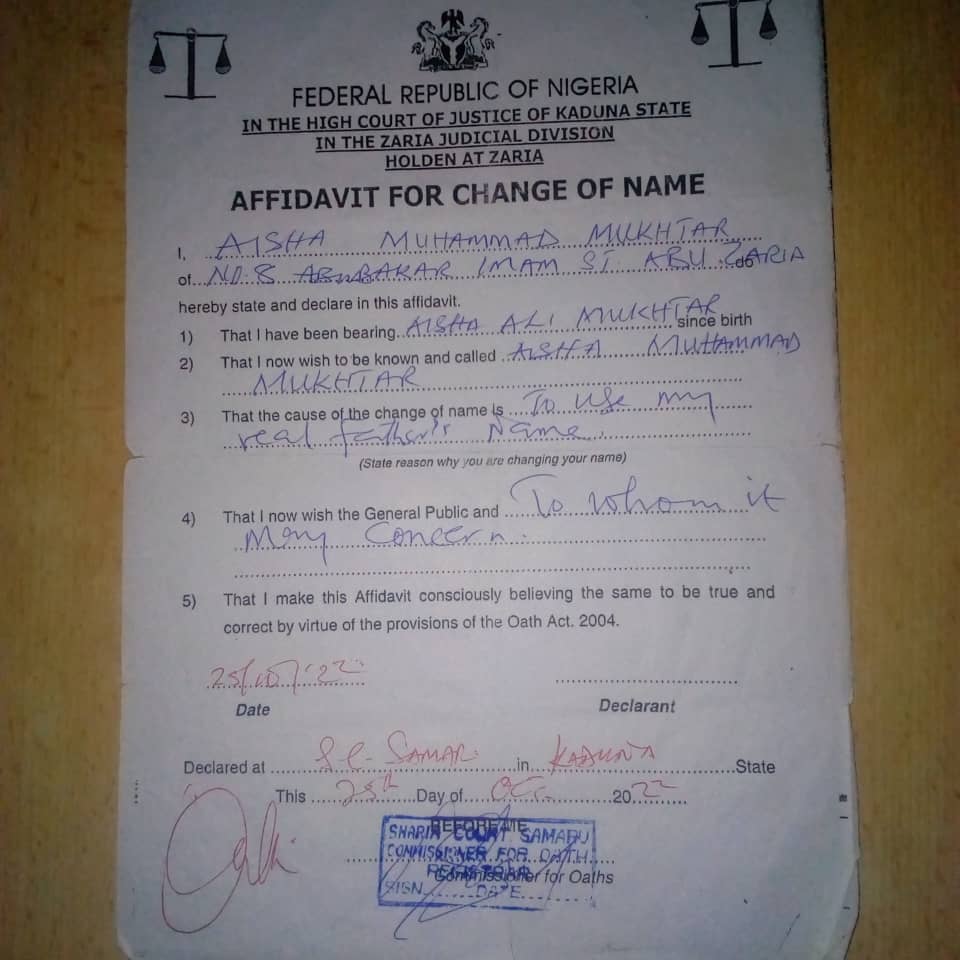 FEDERAL REPUBLIC OF NIGERIA
IN THE HIGH COURT OF JUSTICE OF KADUNA STATE
IN THE ZARIA JUDICIAL DIVISION
HOLDEN AT ZARIA
AFFIDAVIT FOR CHANGE OF NAME
I, AISHA MUHAMMAD MUKHTAR
of NO. 8 ABUBAKAR IMAM ST. ABU ZARIA do
hereby state and declare in this affidavit.
1) That I have been bearing AISHA ALI MUKHTAR since birth
2) That I now wish to be known and called AISHA MUHAMMAD
MUKHTAR
3) That the cause of the change of name is To use my
real father's Name.
(State reason why you are changing your name)
4) That I now wish the General Public and To whom it
May Concern.
5) That I make this Affidavit consciously believing the same to be true and
correct by virtue of the provisions of the Oath Act. 2004.
25/10/'22
Date
Declarant
Declared at S.C. SAMAR in KADUNA State
This 25th Day of OCT. 2022
BEFORE ME
SHARIA COURT SAMARU
COMMISSIONER FOR OATH
REGISTRAR
Commissioner for Oaths
SIGN DATE